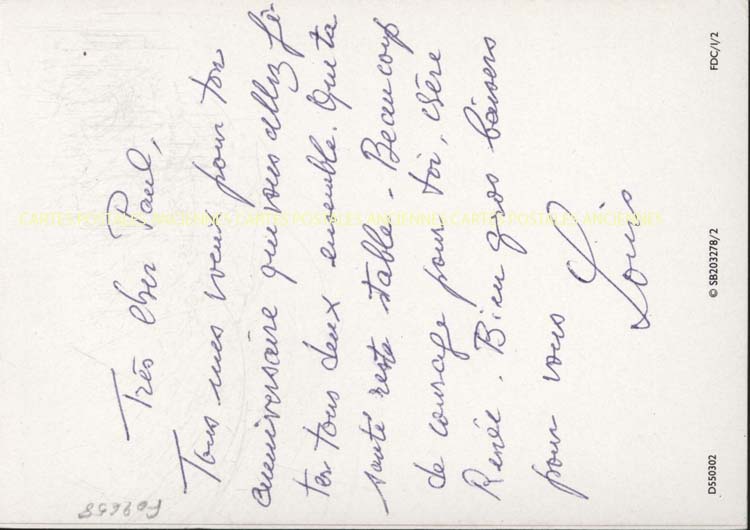 Très cher Paul,
Tous mes voeux pour ton
anniversaire que vous allez fê
ter tous deux ensemble. Que ta
santé reste stable. Beaucoup
de courage pour toi, chère
Renée. Bien gros baisers
pour vous
Louis
D550302
© SB203278/2
FDC/I/2
CARTES POSTALES ANCIENNES CARTES POSTALES ANCIENNES CARTES POSTALES ANCIENNES